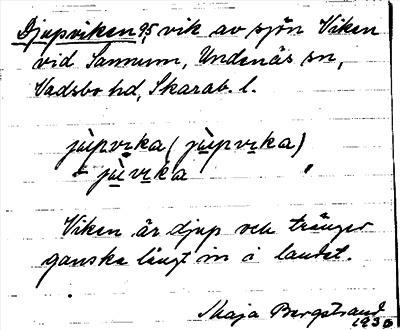 Djupviken 95, vik av sjön Viken
vid Sannum, Undenäs sn,
Vadsbo hd, Skarab. l.
jùpvika (jùpvika)
jùvika
Viken är djup och tränger
ganska långt in i landet.
Maja Bergstrand
1930